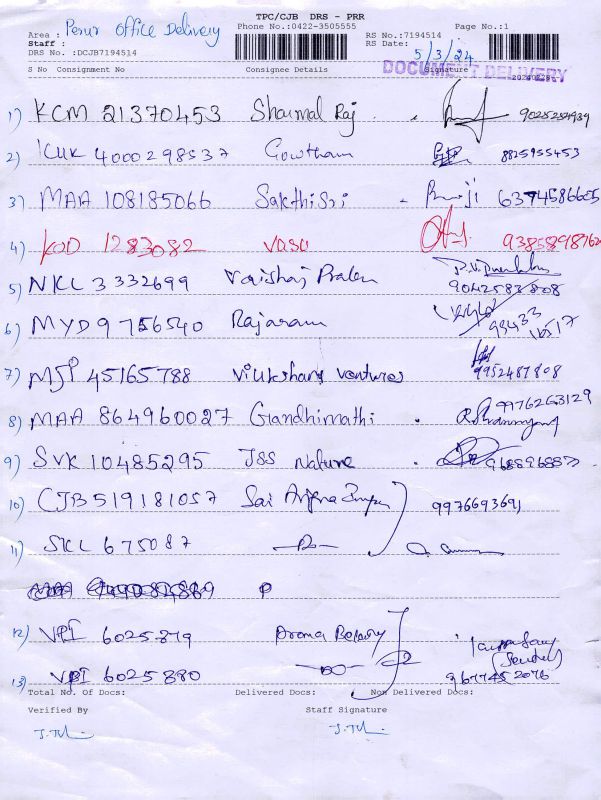 TPC/CJB DRS - PRR
Phone No.:0422-3505555 Page No.:1
Area : Perur Office Delivery RS No.:7194514
Staff : RS Date: 5/3/24
DRS No. :DCJB7194514
DOCUMENT DELIVERY
S No Consignment No Consignee Details Signature
1) KCM 21370453 Sharmal Raj
2) KUK 4000298537 Gowtham 8825955453
3) MAA 108185066 Sakthi Sri 6374586605
4) KOD 1283082 Vasu
5) NKL 3332699 9042583808
6) MYD 9756540 Rajaram
7) MSP 45165788 ventures 9952487808
8) MAA 864960027 Gandhimathi 9976263129
9) SVK 10485295 JSS Nature
10) CJB519181057 Sai 9976693691
11) SKL 675087
12) VPI 6025879
13) VPI 6025880 9677452076
Total No. Of Docs: Delivered Docs: Non Delivered Docs:
Verified By Staff Signature